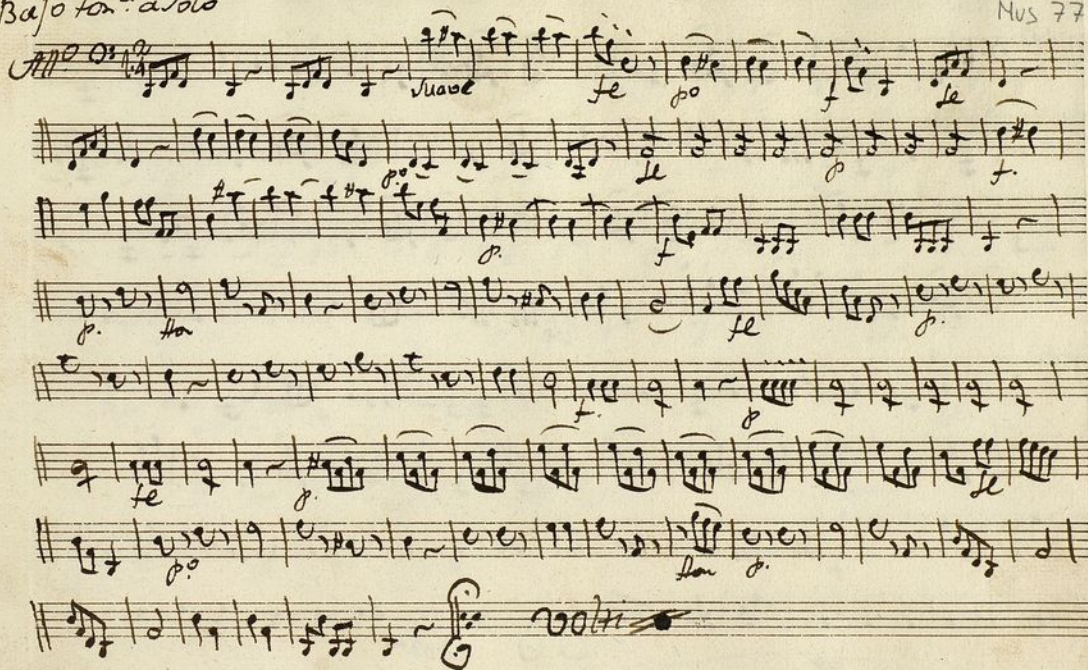 Bajo ton.ª a solo Mus 77
All.º 2/4 suave fe po f fe
po fe p f.
p. f
p. fln fe p.
f. p
fe p. fe
p.o fln p.
volti